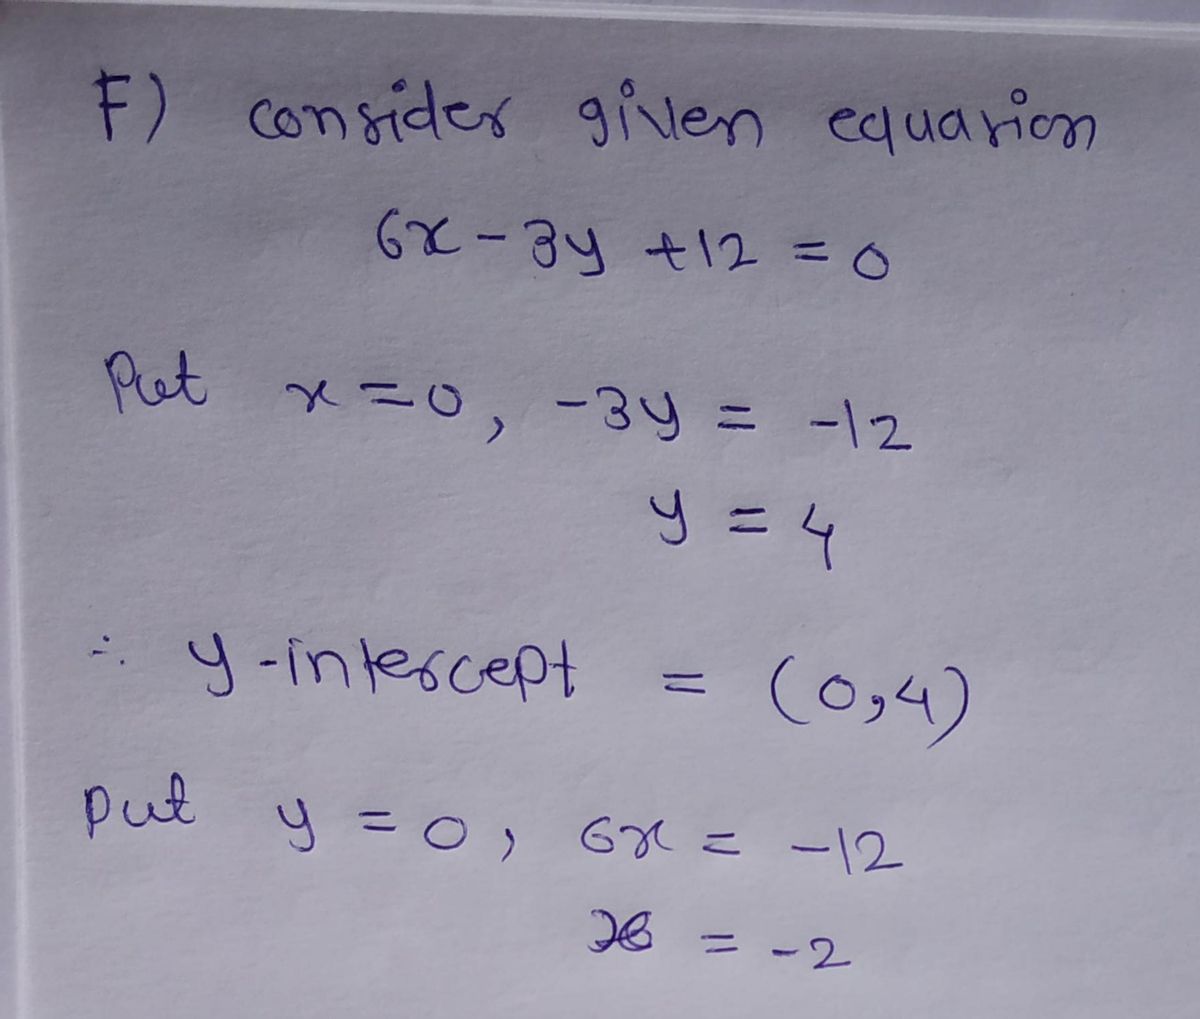 F) consider given equation
6x - 3y + 12 = 0
Put x = 0, -3y = -12
y = 4
∴ y-intercept = (0,4)
put y = 0, 6x = -12
x = -2